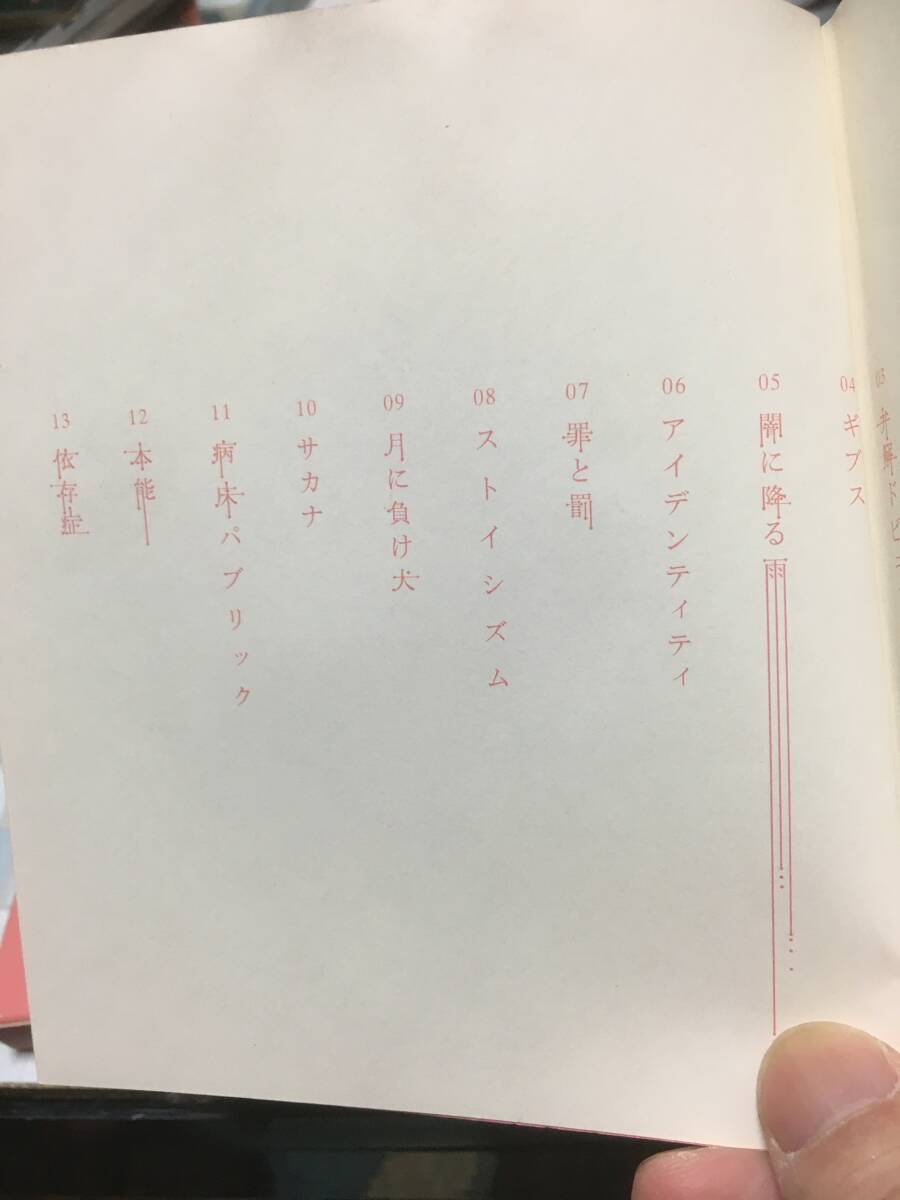 03 弁解ドビ
04 ギブス
05 闇に降る雨
06 アイデンティティ
07 罪と罰
08 ストイシズム
09 月に負け犬
10 サカナ
11 病床パブリック
12 本能
13 依存症